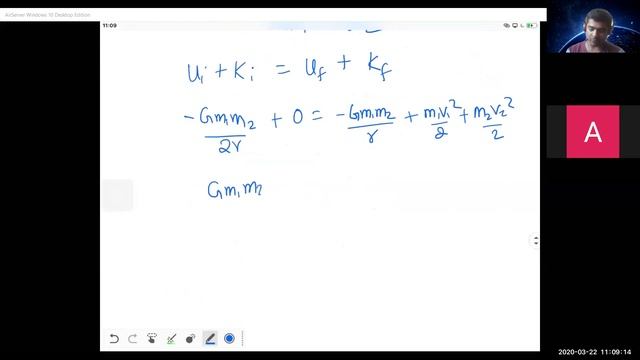 AirServer Windows 10 Desktop Edition
11:09
Ui + Ki = Uf + Kf
-Gm1m2/2r + 0 = -Gm1m2/r + m1v1²/2 + m2v2²/2
Gm1m2
A
2020-03-22 11:09:14